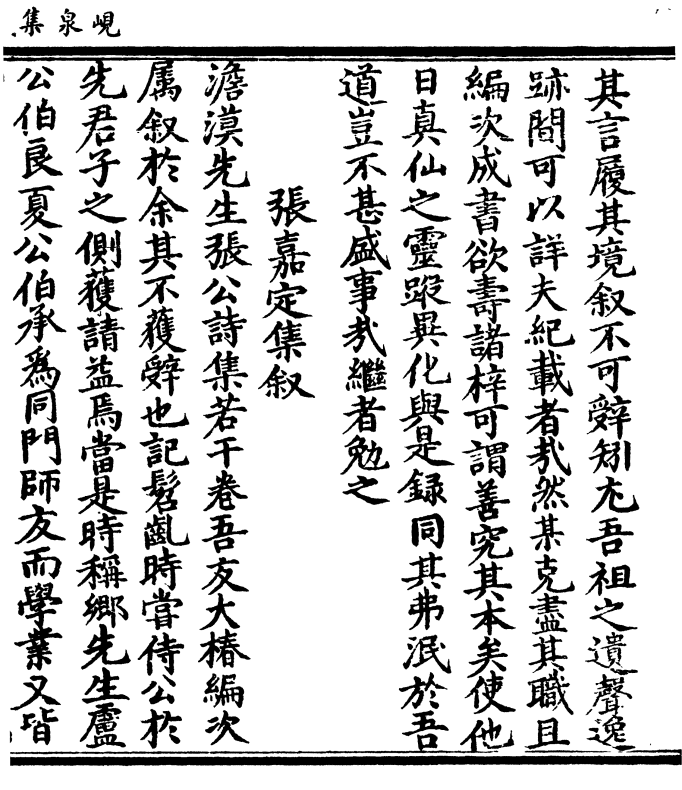 峴泉集
其言履其境叙不可辤矧尢吾祖之遺聲逸
跡間可以詳夫紀載者㢤然某克盡其職且
編次成書欲壽諸梓可謂善究其本矣使他
日真仙之靈蹤異化與是録同其弗泯於吾
道豈不甚盛事㢤繼者勉之
張嘉定集叙
澹漠先生張公詩集若干卷吾友大椿編次
属叙於余其不獲辤也記髫齓時嘗侍公於
先君子之側獲請益焉當是時稱鄉先生盧
公伯良夏公伯承爲同門師友而學業又皆